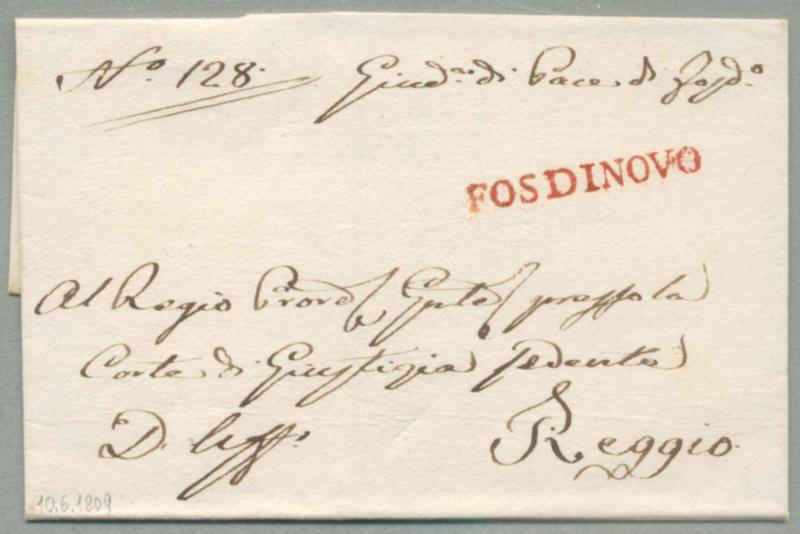 N.o 128. Giud.e di Pace di Fosd.o
FOSDINOVO
Al Regio Gnle presso la
Corte di Giustizia sedente
D.
Reggio.
10.6.1809